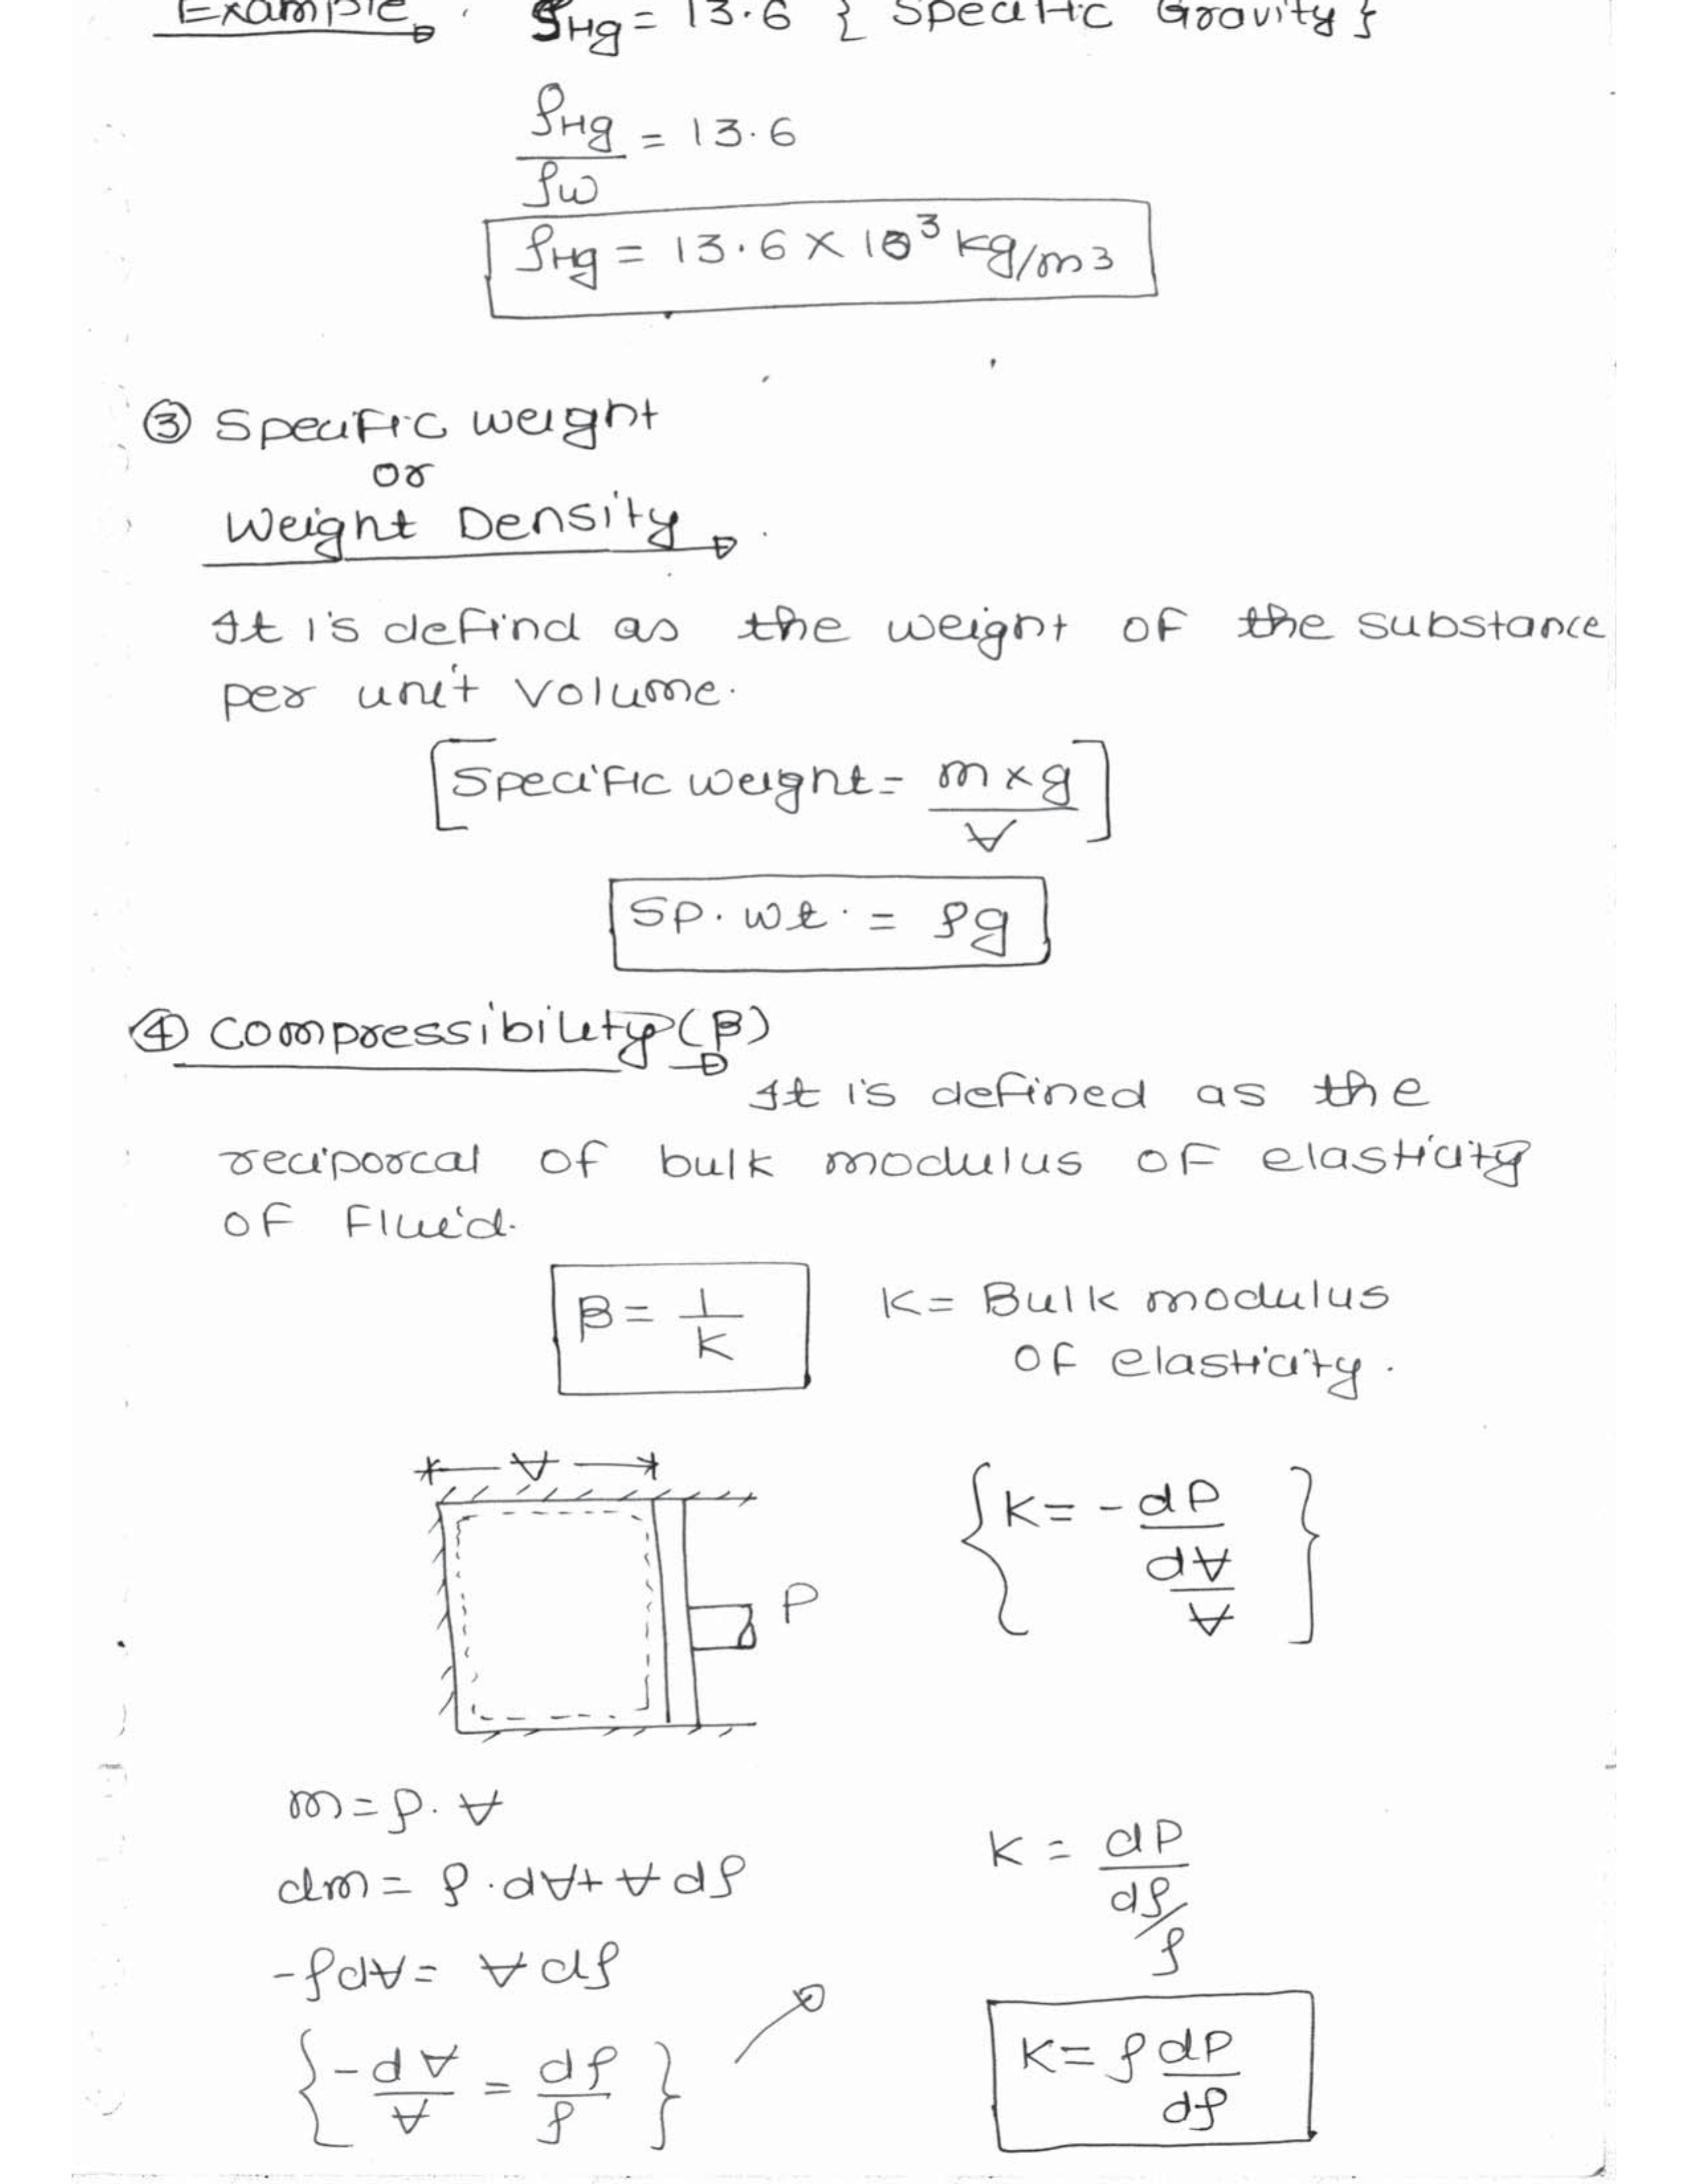 Example, S_Hg = 13.6 { Specific Gravity }
ρ_Hg / ρ_w = 13.6
ρ_Hg = 13.6 × 10³ kg/m3
③ Specific weight
or
Weight Density
It is defind as the weight of the substance
per unit volume.
[Specific weight = m×g / V]
Sp. wt. = ρg
④ compressibility (β)
It is defined as the
reciporcal of bulk modulus of elasticity
of Fluid.
β = 1/K K = Bulk modulus
of elasticity.
V
{K = -dP / (dV/V)}
P
m = ρ. V
dm = ρ.dV + V dρ
-ρdV = V dρ
{-dV/V = dρ/ρ}
K = dP / (dρ/ρ)
K = ρ dP/dρ